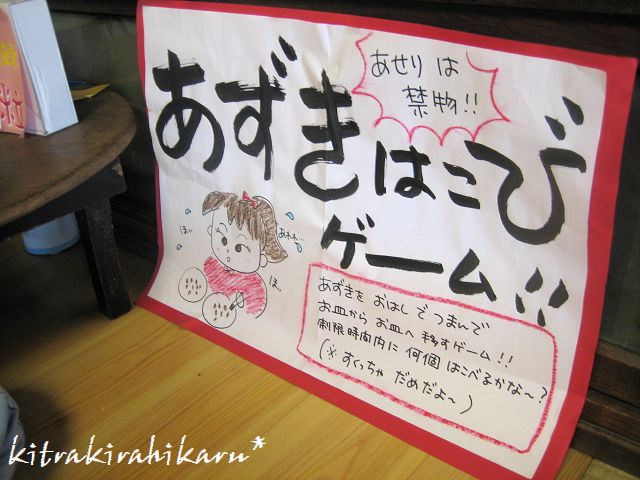 あせりは
禁物!!
あずきはこび
ゲーム!!
ほぃ
あわわ…
ほ..
あずきを おはしで つまんで
お皿から お皿へ 移すゲーム!!
制限時間内に 何個 はこべるかな〜?
(※ すくっちゃ だめだよ〜)
kitrakirahikaru*